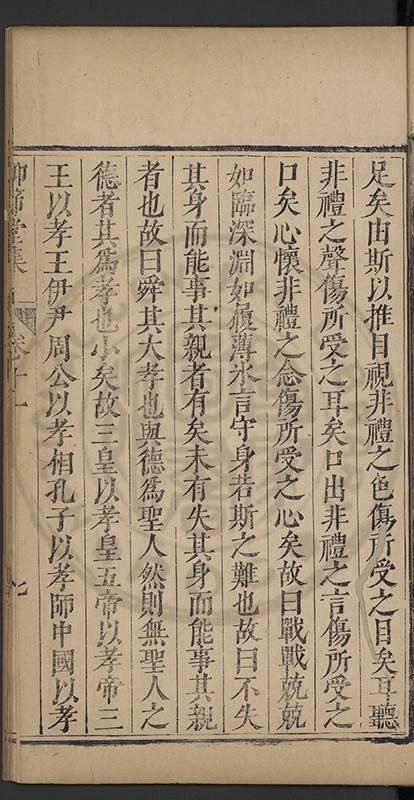 足矣由斯以推目視非禮之色傷所受之目矣耳聽
非禮之聲傷所受之耳矣口出非禮之言傷所受之
口矣心懷非禮之念傷所受之心矣故曰戰戰兢兢
如臨深淵如履薄氷言守身若斯之難也故曰不失
其身而能事其親者有矣未有失其身而能事其親
者也故曰舜其大孝也與德爲聖人然則無聖人之
德者其爲孝也小矣故三皇以孝皇五帝以孝帝三
王以孝王伊尹周公以孝相孔子以孝師中國以孝
堂集
卷十二
九